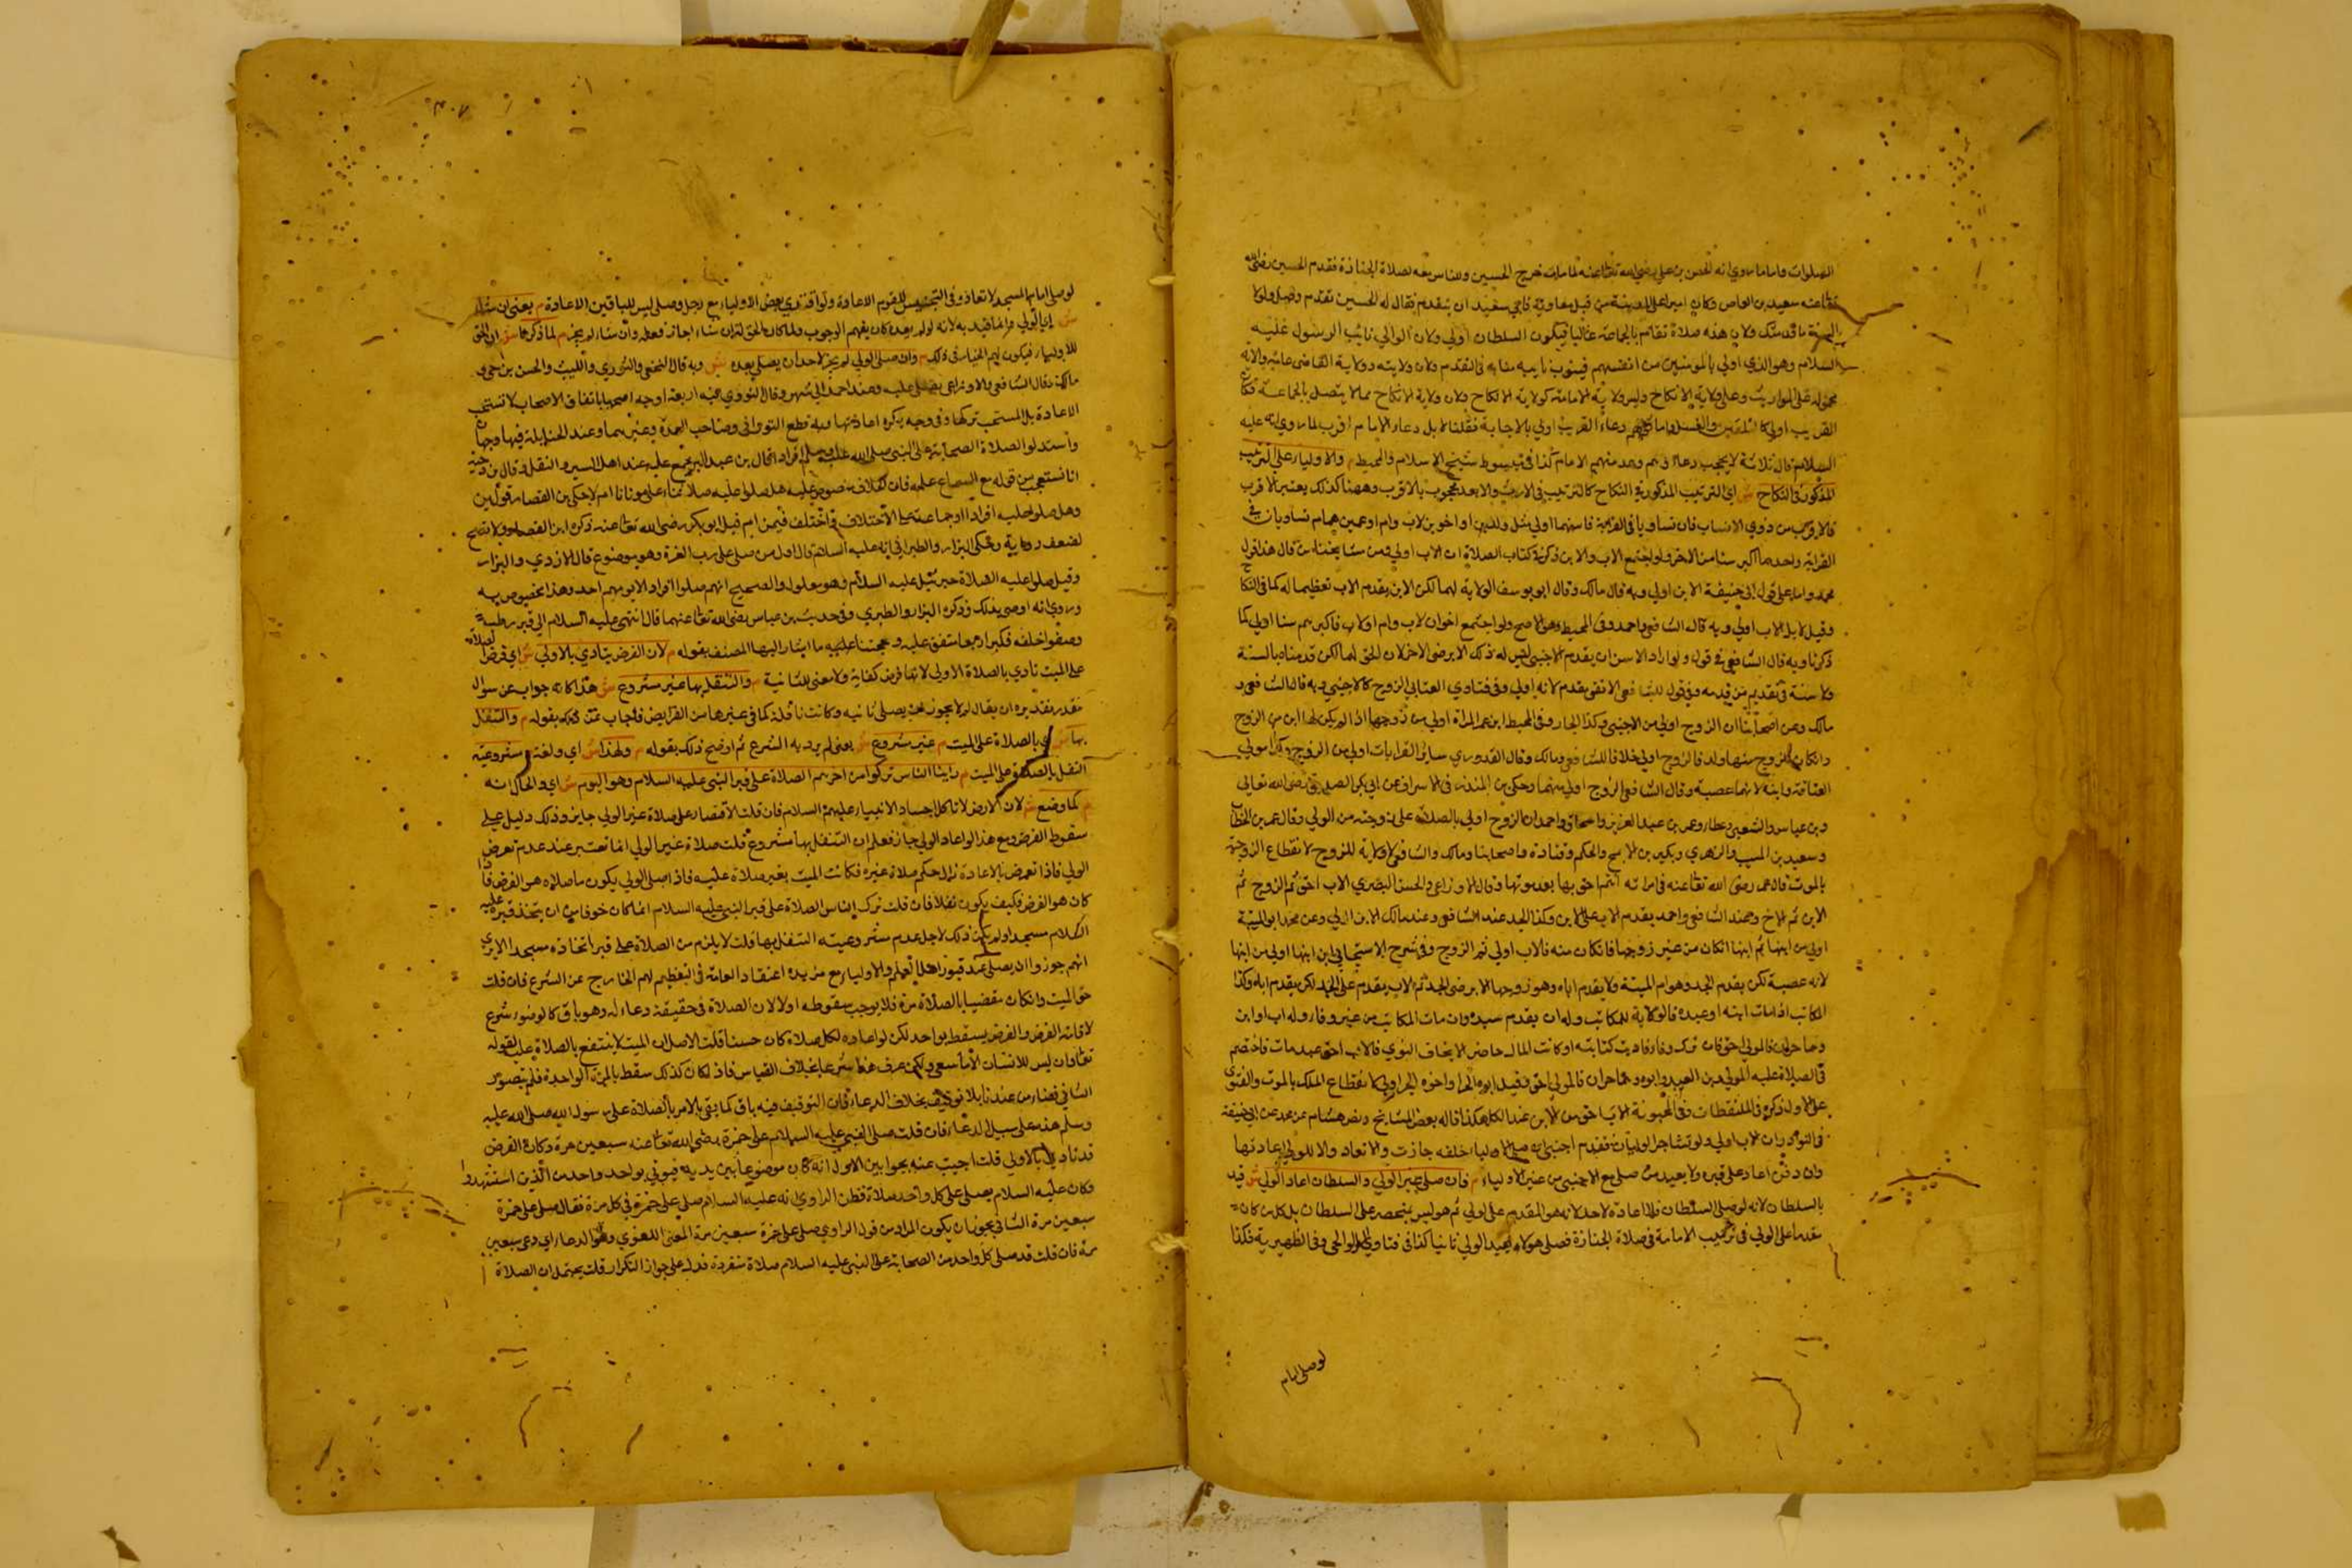 الصلوات واما ما روي انه الحسن بن علي رضي الله تعالى عنه لما مات خرج الحسين والناس معه لصلاة الجنازة فقدم الحسين رضي الله
تعالى عنه سعيد بن العاص وكان اميرا على المدينة من قبل معاوية فابي سعيد ان يتقدم فقال له الحسين تقدم ولولا
السنة ما قدمتك ولان هذه صلاة تقام بالجماعة غالبا فيكون السلطان اولي ولان الوالي نايب الرسول عليه
السلام وهو الذي اولي بالمومنين من انفسهم فينوب نايبه منابه في التقدم ولان ولايته وولاية القاضي عامة والاية
محمولة على المواريث وعلى ولاية الانكاح وليس ولاية الامامة كولاية الانكاح لان ولاية الانكاح مما لا يتصل بالجماعة فكان
القريب اولي كالتكفين والغسل ودعاء القريب اولي بالاجابة فقلنا لا بل دعاء الامام اقرب لما روي انه عليه
السلام قال ثلاثة لا يحجب دعاؤهم وعد منهم الامام كذا في مبسوط شيخ الاسلام والمحيط م والاولياء على الترتيب
المذكور في النكاح ش اي الترتيب المذكور في النكاح كالترتيب في الارث والابعد محجوب بالاقرب وههنا كذلك يعتبر الاقرب
فالاقرب من ذوي الانساب فان تساويا في القرابة فاسنهما اولي مثل ولدين او اخوين لاب وام او عمين هما متساويان في
القرابة واحدهما اكبر سنا من الاخر ولو اجتمع الاب والابن ذكر في كتاب الصلاة ان الاب اولي ومن مشايخنا من قال هذا قول
محمد واما على قول ابي حنيفة الابن اولي وبه قال مالك وقال ابو يوسف الولاية لهما لكن الابن يقدم الاب تعظيما له كما في النكاح
وقيل لا بل الاب اولي وبه قال الشافعي واحمد وفي المحيط وهو الاصح ولو اجتمع اخوان لاب وام او لاب فاكبرهم سنا اولي لما
ذكرنا وبه قال الشافعي في قول ولو اراد الاسن ان يقدم الاجنبي ليس له ذلك الا برضى الاخر لان الحق لهما لكن قدمناه بالسنة
ولا سنة في تقديم من قدمه وفي قول للشافعي الاتقي يقدم لانه اولي وفي فتاوي العتابي الزوج كالاجنبي وبه قال الشافعي و
مالك وعن اصحابنا ان الزوج اولي من الاجنبي وكذا الجار وفي المحيط ابن عم المراة اولي من زوجها اذا لم يكن لها ابن من الزوج
وان كان للزوج منها ولد فالزوج اولي خلافا للشافعي ومالك وقال القدوري سائر القرابات اولي من الزوج وكذا مولي
العتاقة وابنه لانهما عصبة وقال الشافعي الزوج اولي منهما وحكي بن المنذر في الاسراف عن ابي بكر الصديق رضي الله تعالى
وبن عباس والشعبي وعطا وعمر بن عبد العزيز واسحاق واحمد ان الزوج اولي بالصلاة على زوجته من الولي وقال عمر بن الخطاب
وسعيد بن المسيب والزهري وبكير بن الاشج والحكم وقتادة واصحابنا ومالك والشافعي لا ولاية للزوج لانقطاع الزوجية
بالموت قال عمر رضي الله تعالى عنه في امراته انتم احق بها بعد موتها وقال الاوزاعي والحسن البصري الاب احق ثم الزوج ثم
الابن ثم الاخ وعند الشافعي واحمد يقدم الاب على الابن وكذا الجد عند الشافعي وعند مالك الابن اولي وعن محمد ابو الميتة
اولي من ابنها ثم ابنها ان كان من غير زوجها فان كان منه فالاب اولي ثم الزوج وفي شرح الاسبيجابي ابن ابنها اولي من ابنها
لانه عصبة لكن يقدم الجد وهو ام الميتة ولا يقدم اباه وهو زوجها الا برضى الجد ثم الاب يقدم على الجد لكن يقدم اباه وكذا
المكاتب اذا مات ابنه او عبده فالولاية للمكاتب وله ان يقدم سيده وان مات المكاتب من غير وفاء وله اب او ابن
وهما حران فالمولي احق فان ترك وفاء فاديت كتابته او كانت المال حاضرا لا يخاف التوي فالاب احق عبد مات فاختصم
في الصلاة عليه المولي بن العبد وابوه وهما حران فالمولي احق وقيل ابوه الحر او اخوه الحر اولي لانقطاع الملك بالموت والفتوي
على الاول ذكره في الملتقطات وفي المجنونة الاب احق من الابن عند الكل هكذا قاله بعض المشايخ ونص هشام عن محمد عن ابي حنيفة
في النوادر ان الاب اولي ولو تشاجر الوليان فتقدم اجنبي ان صلى الاولياء خلفه جازت ولا تعاد والا للولي اعادتها
وان دفن اعاد على قبره ولا يعيد من صلى مع الاجنبي من غير الاولياء م فان صلى غير الولي والسلطان اعاد الولي ش قيد
بالسلطان لانه لو صلى السلطان فلا اعادة لاحد لانه هو المقدم على الولي ثم هو ليس بمنحصر على السلطان بل كل من كان
مقدما على الولي في ترتيب الامامة في صلاة الجنازة فصلى هو لا يعيد الولي ثانيا كذا في فتاوي الولوالجي وفي الظهيرية فكذا
لو صلى امام
٣٠٧
لو صلى امام المسجد لا تعاد وفي التجنيس ليس للقوم الاعادة ولو اقتدي بعض الاولياء مع رجل وصلى ليس للباقين الاعادة م يعني ان شاء
ش اي الولي م انما قيد به لانه لو لم يعده كان يفهم الوجوب ولما كان الحق له ان شاء اجاز فعله وان شاء لم يجز م لما ذكرنا ش ان الحق
للاولياء فيكون لهم الخيار في ذلك م وان صلى الولي لم يجز لاحد ان يصلي بعده ش وبه قال النخعي والثوري والليث والحسن بن حي و
مالك وقال الشافعي والاوزاعي يصلى عليه وعند احمد الي شهر وقال النووي فيه اربعة اوجه اصحها باتفاق الاصحاب لا تستحب
الاعادة بل المستحب تركها وفي وجه يكره اعادتها وبه قطع الفوراني وصاحب العدة وغيرهما وعند الحنابلة فيها وجهان
واستدلوا الصلاة الصحابة على النبي صلى الله عليه وسلم افرادا قال بن عبد البر مجمع عليه عند اهل السير والنقل وقال بن دحية
انا نستعجب من قوله مع اتساع علمه فان الخلاف منصوص عليه هل صلوا عليه صلاتنا على موتانا ام لا حكي بن القصار قولين
وهل صلوا عليه افرادا او جماعة على الاختلاف فاختلف فيمن ام قيل ابو بكر رضي الله تعالى عنه ذكره ابن القصار ولا يصح
لضعف رواية وحكي البزار والطبراني انه عليه السلام قال اول من صلى على رب العزة وهو موضوع قال الازدي والبزار
وقيل صلوا عليه الصلاة جبرئيل عليه السلام وهو معلول والصحيح انهم صلوا افرادا لا يومهم احد وهذا مخصوص به
وروي انه اوصي بذلك ذكره البزار والطبري وفي حديث بن عباس رضي الله تعالى عنهما قال انتهي عليه السلام الي قبر رطب
وصفوا خلفه فكبر اربعا متفق عليه وحجتنا عليه ما اشار اليها المصنف بقوله م لان الفرض يتادي بالاولي ش اي فرض الصلاة
على الميت تادي بالصلاة الاولي لانها فرض كفاية ولا معنى للثانية م والتنفل بها غير مشروع ش هذا كانه جواب عن سؤال
مقدر تقديره ان يقال لم لا يجوز لمن يصلي ثانيه وكانت نافلة كما في غيرها من الفرايض فاجاب عن ذلك بقوله م والتنفل
بها ش اي بالصلاة على الميت م غير مشروع ش يعني لم يرد به الشرع ثم اوضح ذلك بقوله م ولهذا ش اي ولعدم مشروعية
التنفل بالصلاة على الميت م راينا الناس تركوا من اخرهم الصلاة على قبر النبي عليه السلام وهو اليوم ش اي والحال انه
م كما وضع ش لان الارض لا تاكل اجساد الانبياء عليهم السلام فان قلت الاقتصار على صلاة غير الولي جايز وذلك دليل على
سقوط الفرض ومع هذا لو اعاد الولي جاز فعلم ان التنفل بها مشروع قلت صلاة غير الولي انما تعتبر عند عدم تعرض
الولي فاذا تعرض بالاعادة زال حكم صلاة غيره فكانت الميت بغير صلاة عليه فاذا صلى الولي يكون ما صلاه هو الفرض فاذا
كان هو الفرض فكيف يكون نفلا فان قلت ترك الناس الصلاة على قبر النبي عليه السلام انما كان خوفا من ان يتخذ قبره عليه
السلام مسجدا ولم يكن ذلك لاجل عدم مشروعيته التنفل بها قلت لا يلزم من الصلاة على قبر اتخاذه مسجدا الا يري
انهم جوزوا ان يصلى عند قبور اهل العلم والاولياء مع مزيد اعتقاد العامة في تعظيمهم الخارج عن الشرع فان قلت
حق الميت وان كان مقضيا بالصلاة مرة فلا يوجب سقوطه اولا لان الصلاة في حقيقة دعاء له وهو باق كالوضوء شرع
لاقامة الفرض والفرض يسقط بواحد لكن لو اعاده لكل صلاة كان حسنا قلت الاصل ان الميت لا ينتفع بالصلاة عليه لقوله
تعالى وان ليس للانسان الا ما سعي ولكن عرف هذا شرعا بخلاف القياس فاذا كان كذلك سقط بالمرة الواحدة فلم يتصور
الثاني قضاء من عندنا بلا توقيف بخلاف الدعاء فان التوقيف فيه باق كما بقي بالامر بالصلاة على رسول الله صلى الله عليه
وسلم هذه على سبيل الدعاء فان قلت صلى النبي عليه السلام على حمزة رضي الله تعالى عنه سبعين مرة وكان الفرض
قد تادي بالاولي قلت اجيب عنه بجوابين الاول انه كان موضوعا بين يديه فيوتي بواحد واحد من الذين استشهدوا
وكان عليه السلام يصلي على كل واحد صلاة فظن الراوي انه عليه السلام صلى على حمزة في كل مرة فقال صلى على حمزة
سبعين مرة الثاني يجوز ان يكون المراد من قول الراوي صلى على حمزة سبعين مرة المعنى اللغوي وهو الدعاء اي دعى سبعين
مرة فان قلت قد صلى كل واحد من الصحابة على النبي عليه السلام صلاة منفردة فدل على جواز التكرار قلت يحتمل ان الصلاة